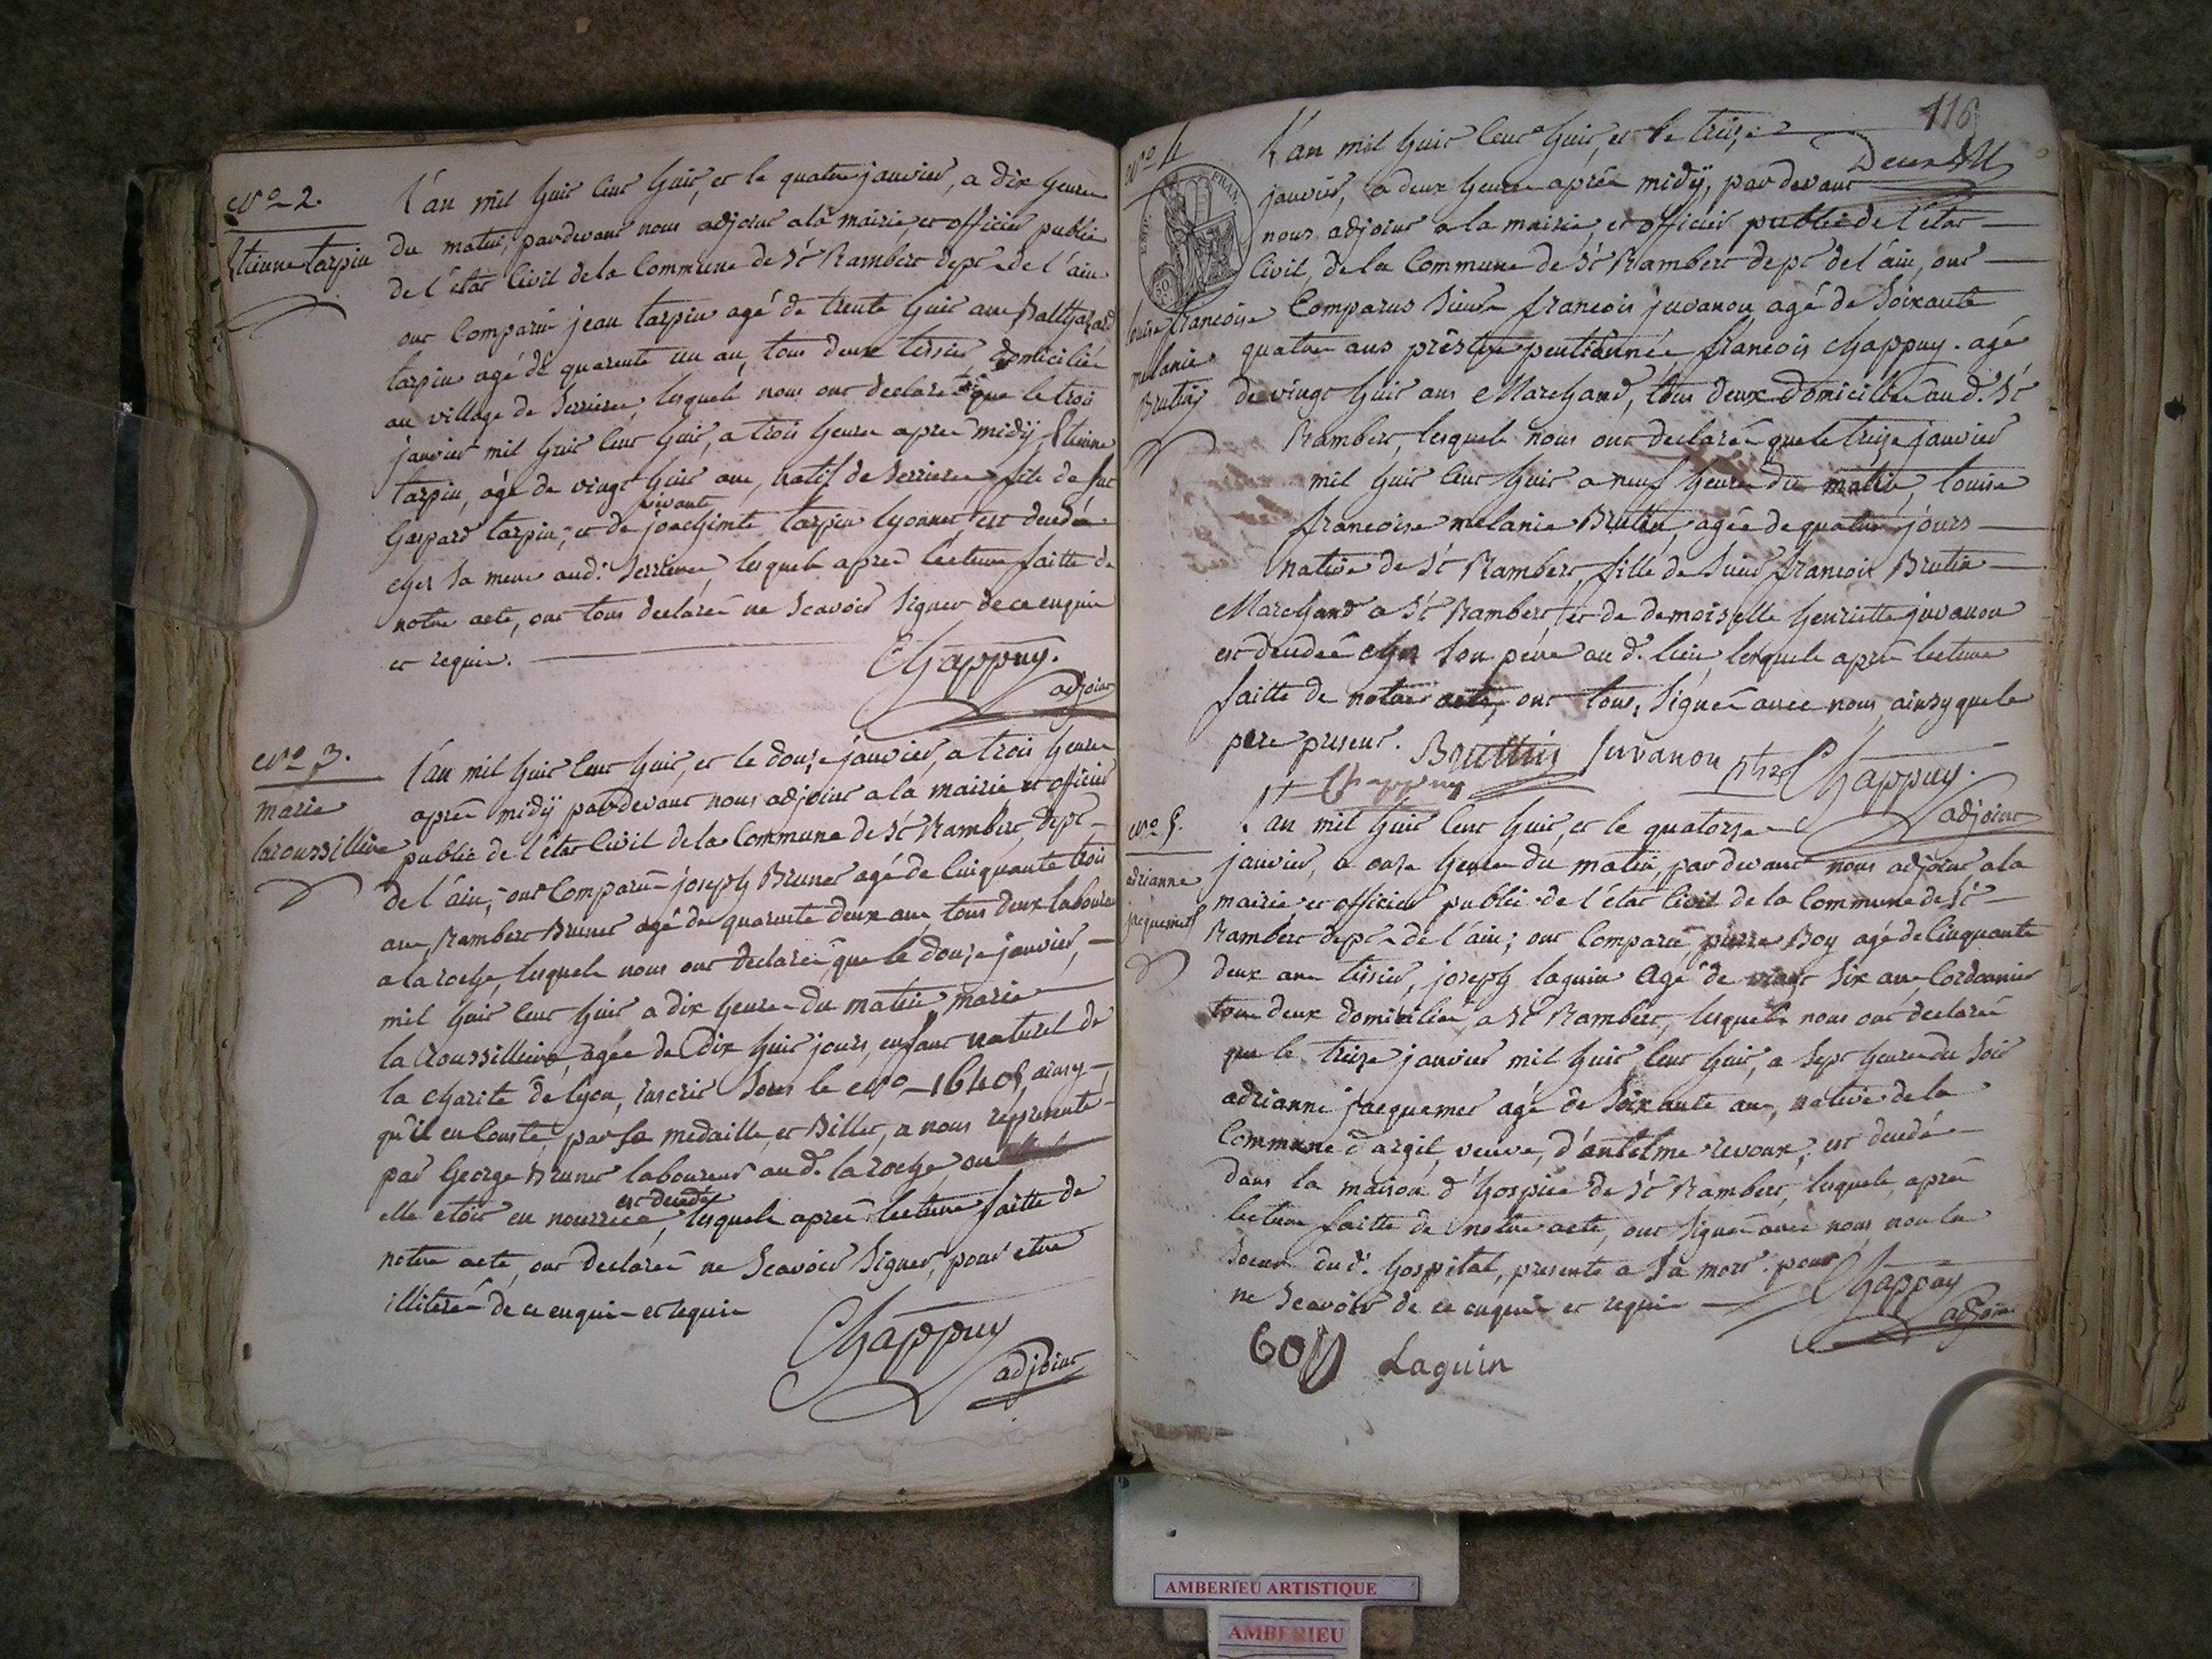 N.º 2.
Etienne tarpin
L'an mil huit cent huit, et le quatre janvier, a dix heures
du matin, pardevant nous adjoint a la mairie, et officier public
de l'état Civil de la Commune de St Rambert dept de l'ain
ont Comparu jean tarpin agé de trente huit ans Balthazard
tarpin agé de quarente un an, tous deux tissier, domiciliés
au village de Serrieres, lesquels nous ont declarés que le trois
janvier mil huit cent huit, a trois heures apres midÿ, Etienne
tarpin, agé de vingt huit ans, natif de Serrieres, fils de fut
vivant
Gaspard tarpin, et de joachimte tarpin lyonnet, est decedé
chez sa mere aud. Serrieres, lesquels apres lecture faitte de
notre acte, ont tous declarés ne Scavoir Signer de ce enquis
et requis.
Chappuy.
adjoint
N.º 3.
marie
laroussilliere
L'an mil huit cent huit, et le douze janvier, a trois heures
aprés midÿ pardevant nous adjoint a la mairie et officier
public de l'état Civil de la Commune de St Rambert, dept
de l'ain, ont Comparu joseph Brunet agé de Cinquante trois
ans, Rambert Brunet agé de quarente deux ans, tous deux laboureur
a la roche, lesquels nous ont declarés que le douze janvier,
mil huit cent huit a dix heures du matin marie
la Roussilliere, agée de dix huit jours, enfant naturel de
la charité de lyon, inscrit Sous le N.º 16405, ainsy
qu'il en Conste, par sa medaille, et Billet, a nous representé
par George Brunet laboureur aud. la roche, ou
est decedée
elle etoit en nourrice, lesquels aprés lecture faitte de
notre acte, ont declarés ne Scavoir Signer, pour etre
illiterés de ce enquis et requis
Chappuy
adjoint
116
N.º 4
REP. FRAN.
louise francoise
melanie
Brutin
L'an mil huit cent huit, et le treize
janvier, a deux heures aprés midÿ, par devant
nous adjoint a la mairie, et officier public de l'état
Civil, de la Commune de St Rambert dept de l'ain, ont
Comparus Sieurs francois juvanon agé de Soixante
quatre ans prêstre pentionnée francois chappuy. agé
de vingt huit ans Marchand, tous deux domiciliés aud. St
Rambert, lesquels nous ont declarés que le treize janvier
mil huit cent huit a neuf heures du matin, louise
francoise melanie Brutin, agée de quatre jours
native de St Rambert, fille de Sieur francois Brutin
Marchand a St Rambert, et de demoiselle henriette juvanon
est decedée chez Son pere au d. lieu, lesquels aprés lecture
faitte de notre acte, ont tous, Signés avec nous, ainsy que le
pere present. Bruttin Juvanon ptre Chappuy.
Chappuy
adjoint
N.º 5.
adrianne
jacquemet
L'an mil huit cent huit, et le quatorze
janvier, a onze heures du matin, par devant nous adjoint a la
mairie, et officier public de l'état Civil de la Commune de St
Rambert dept de l'ain; ont Comparu, pierre Boy agé de Cinquante
deux ans tissier, joseph laguin agé de vingt Six ans, Cordonnier
tous deux domiciliés a St Rambert, lesquels nous ont declarés
que le treize janvier mil huit cent huit, a Sept heures du Soir
adrianne jacquemet agé de Soixante ans, native de la
Commune d'argil, veuve, d'antelme revoux; est decedé
dans la maison d'hospice de St Rambert, lesquels, aprés
lecture faitte de notre acte, ont Signés avec nous, non la
Soeur du d. hospital, presente a Sa mort pour
ne Scavoir de ce enquis et requis
Chappuy
adjoint
Boy Laguin
AMBERIEU ARTISTIQUE
AMBERIEU